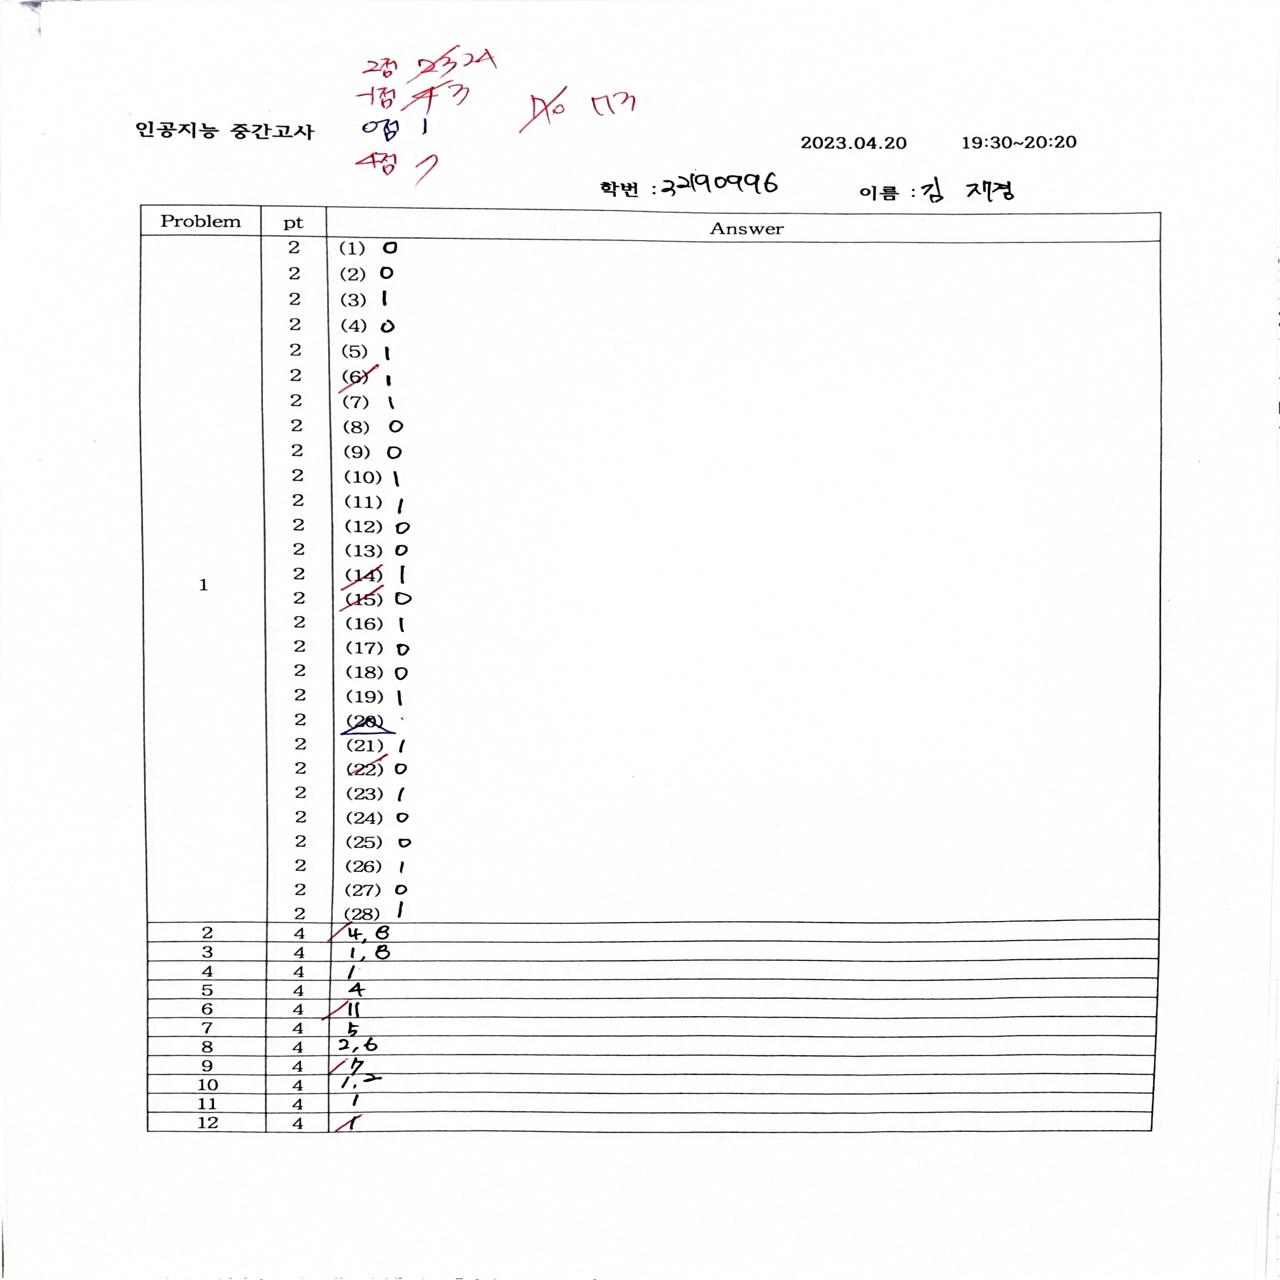 2점 23 24
-1점 4 3
0점 1
4점 7
70 73
인공지능 중간고사
2023.04.20 19:30~20:20
학번 : 32190996 이름 : 김 재경
Problem pt Answer
1
2 (1) 0
2 (2) 0
2 (3) 1
2 (4) 0
2 (5) 1
2 (6) 1
2 (7) 1
2 (8) 0
2 (9) 0
2 (10) 1
2 (11) 1
2 (12) 0
2 (13) 0
2 (14) 1
2 (15) 0
2 (16) 1
2 (17) 0
2 (18) 0
2 (19) 1
2 (20)
2 (21) 1
2 (22) 0
2 (23) 1
2 (24) 0
2 (25) 0
2 (26) 1
2 (27) 0
2 (28) 1
2 4 4, 8
3 4 1, 8
4 4 1
5 4 4
6 4 11
7 4 5
8 4 2, 6
9 4 7
10 4 1, 2
11 4 1
12 4 1